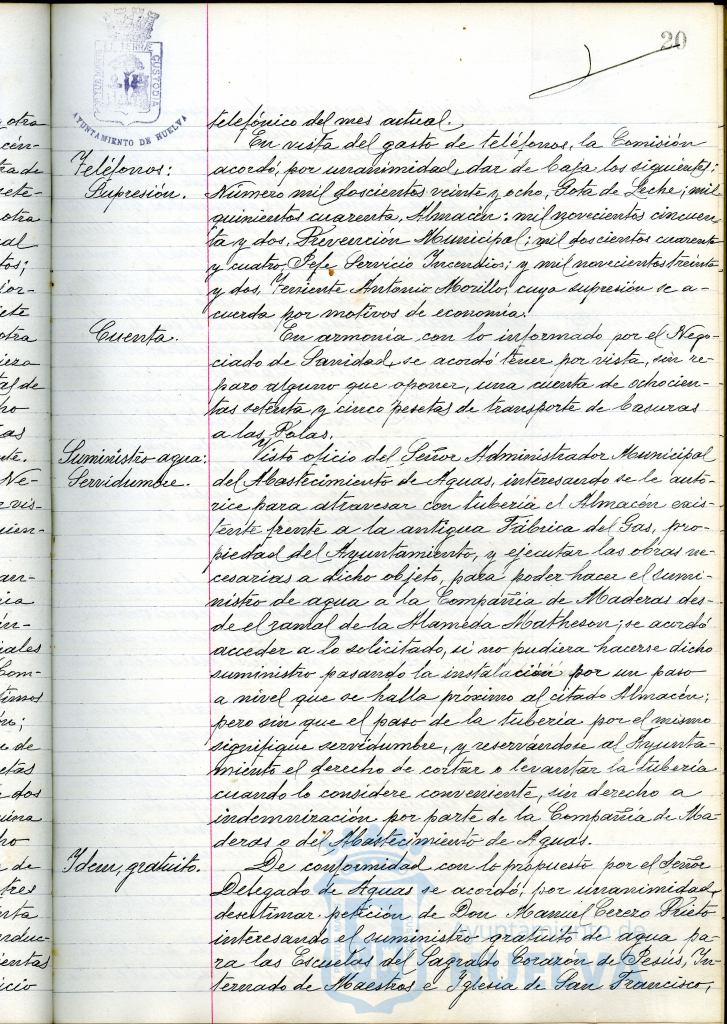 20
AYUNTAMIENTO DE HUELVA
CUSTODIA
telefónico del mes actual.
Teléfonos:
Supresión.
En vista del gasto de teléfonos, la Comisión
acordó, por unanimidad, dar de baja los siguientes:
Número mil doscientos veinte y ocho, Gota de Leche; mil
quinientos cuarenta, Almacén; mil novecientos cincuen-
ta y dos, Prevención Municipal; mil doscientos cuarenta
y cuatro, Jefe Servicio Incendios; y mil novecientos treinta
y dos, Teniente Antonio Morillo, cuya supresión se a-
cuerda por motivos de economía.
Cuenta.
En armonía con lo informado por el Nego-
ciado de Sanidad, se acordó tener por vista, sin re-
paro alguno que oponer, una cuenta de ochocien-
tas setenta y cinco pesetas de transporte de basuras
a las Polas.
Suministro agua:
Servidumbre.
Visto oficio del Señor Administrador Municipal
del Abastecimiento de Aguas, interesando se le auto-
rice para atravesar con tubería el Almacén exis-
tente frente a la antigua Fábrica del Gas, pro-
piedad del Ayuntamiento, y ejecutar las obras ne-
cesarias a dicho objeto, para poder hacer el sumi-
nistro de agua a la Compañía de Maderas des-
de el ramal de la Alameda Matheson; se acordó
acceder a lo solicitado, si no pudiera hacerse dicho
suministro pasando la instalación por un paso
a nivel que se halla próximo al citado Almacén;
pero sin que el paso de la tubería por el mismo
signifique servidumbre, y reservándose al Ayunta-
miento el derecho de cortar o levantar la tubería
cuando lo considere conveniente, sin derecho a
indemnización por parte de la Compañía de Ma-
deras o del Abastecimiento de Aguas.
Idem, gratuito.
De conformidad con lo propuesto por el Señor
Delegado de Aguas se acordó, por unanimidad,
desestimar petición de Don Manuel Cerero Prieto
interesando el suministro gratuito de agua pa-
ra las Escuelas del Sagrado Corazón de Jesús, In-
ternado de Maestros e Iglesia de San Francisco,
Ayuntamiento de
HUELVA